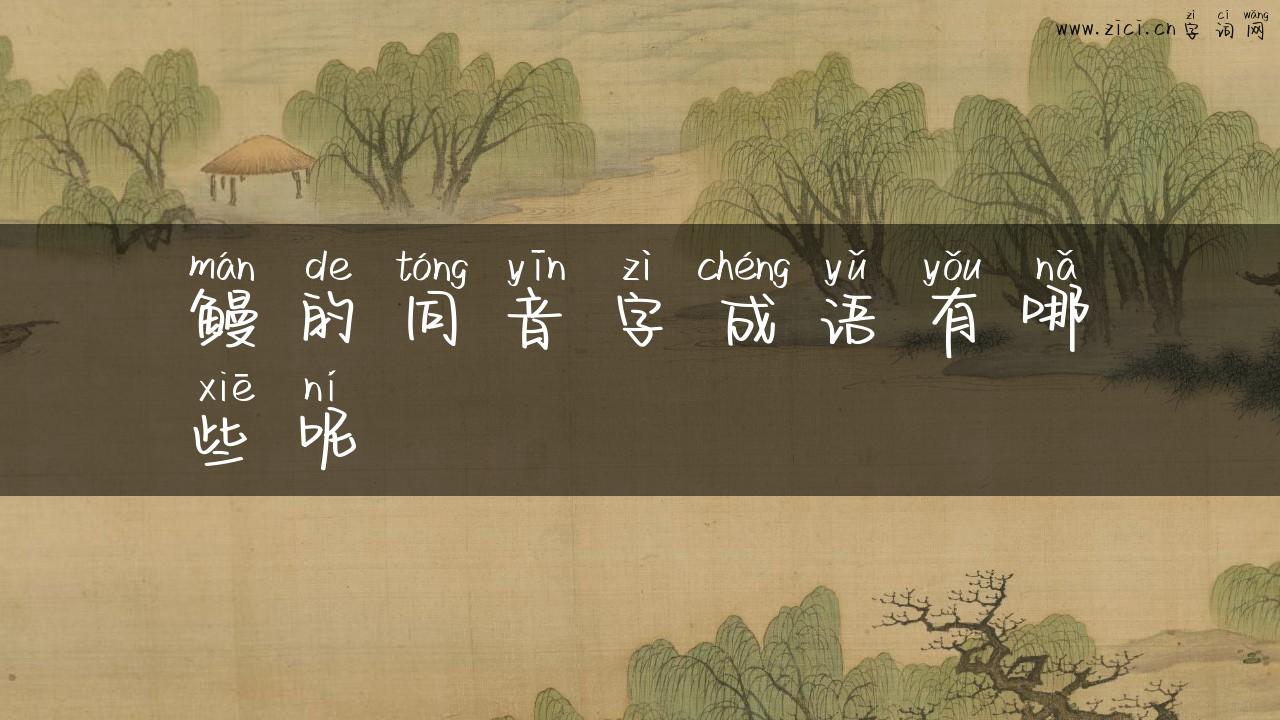 zì cí wǎng
www.zici.cn 字 词 网
mán de tóng yīn zì chéng yǔ yǒu nǎ
鳗 的 同 音 字 成 语 有 哪
xiē ní
些 呢